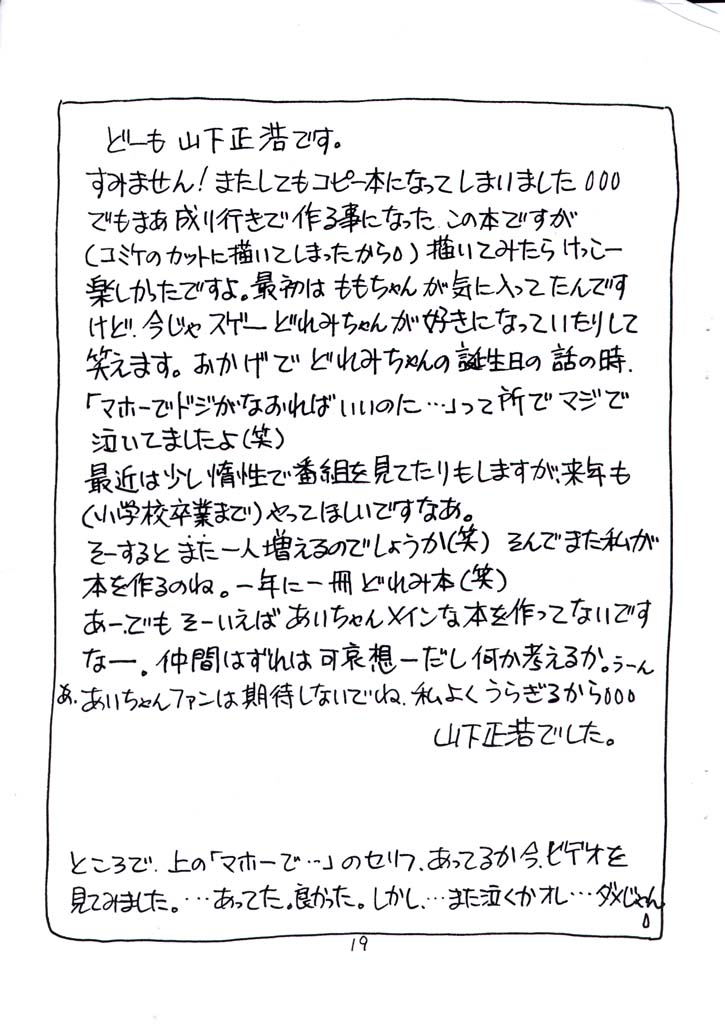 どーも 山下正浩です。
すみません!またしてもコピー本になってしまいました000
でもまあ成り行きで作る事になった この本ですが
(コミケのカットに描いてしまったから0)描いてみたら けっこー
楽しかったですよ。最初は ももちゃんが気に入ってたんです
けど.今じゃ スゲー どれみちゃんが好きになっていたりして
笑えます。おかげで どれみちゃんの誕生日の 話の時.
「マホーでドジがなおればいいのに…」って所で マジで
泣いてましたよ(笑)
最近は少し惰性で番組を見てたりもしますが、来年も
(小学校卒業まで)やってほしいですなあ。
そーすると また一人増えるのでしょうか(笑) そんでまた私が
本を作るのね。一年に一冊 どれみ本(笑)
あー.でも そーいえば あいちゃんメインな本を作ってないです
なー。仲間はずれは可哀想ーだし何か考えるか。うーん
あ.あいちゃんファンは期待しないでね.私よくうらぎるから000
山下正浩でした。
ところで.上の「マホーで…」のセリフ、あってるか今.ビデオを
見てみました。…あってた。良かった。しかし、…また泣くかオレ…ダメじゃん0
19